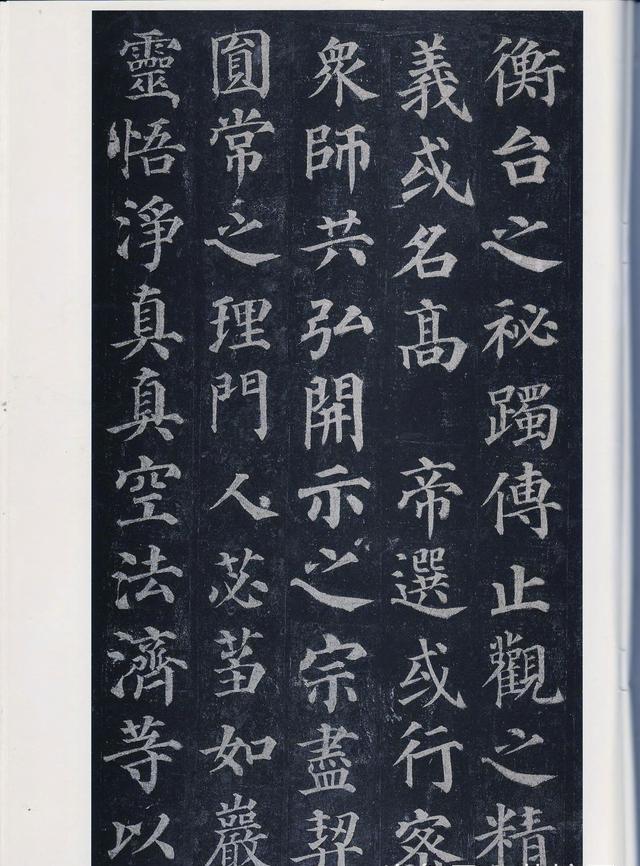 衡台之秘躅傳止觀之精
義或名高帝選或行密
眾師共弘開示之宗盡契
圎常之理門人苾蒭如巖
靈悟淨真真空法濟等以